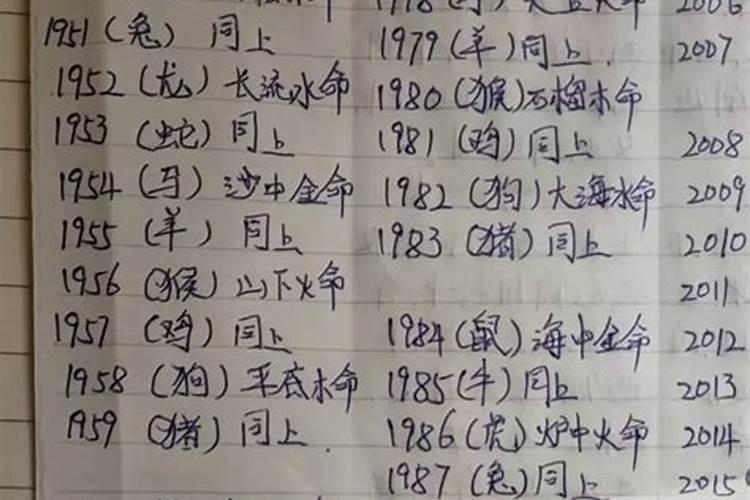 1978 (马) 天上火命 2006
1951 (兔) 同上 1979 (羊) 同上. 2007
1952 (龙) 长流水命 1980 (猴) 石榴木命
1953 (蛇) 同上 1981 (鸡) 同上 2008
1954 (马) 沙中金命 1982 (狗) 大海水命 2009
1955 (羊) 同上 1983 (猪) 同上 2010
1956 (猴) 山下火命 2011
1957 (鸡) 同上 1984 (鼠) 海中金命 2012
1958 (狗) 平底木命 1985 (牛) 同上 2013
1959 (猪) 同上. 1986 (虎) 炉中火命 2014
1987 (兔) 同上 2015